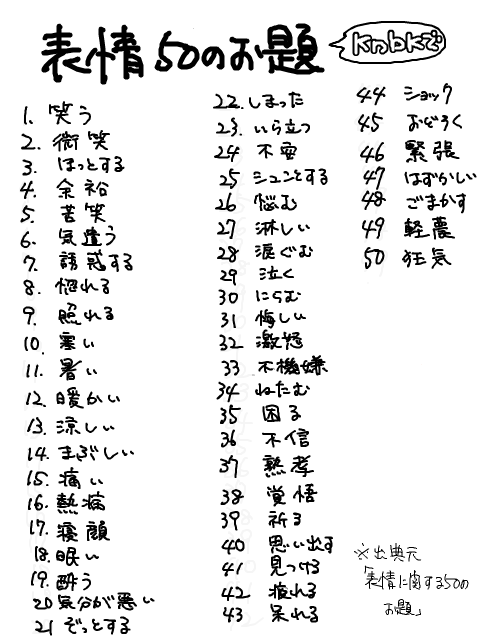 表情50のお題
KnbKで
1. 笑う
2. 微笑
3. ほっとする
4. 余裕
5. 苦笑
6. 気遣う
7. 誘惑する
8. 惚れる
9. 照れる
10. 寒い
11. 暑い
12. 暖かい
13. 涼しい
14. まぶしい
15. 痛い
16. 熱病
17. 寝顔
18. 眠い
19. 酔う
20 気分が悪い
21 ぞっとする
22. しまった
23. いら立つ
24 不安
25 シュンとする
26 悩む
27 淋しい
28 涙ぐむ
29 泣く
30 にらむ
31 悔しい
32 激怒
33 不機嫌
34 ねたむ
35 困る
36 不信
37 熟考
38 覚悟
39 祈る
40 思い出す
41 見つける
42 疲れる
43 呆れる
44 ショック
45 おどろく
46 緊張
47 はずかしい
48 ごまかす
49 軽蔑
50 狂気
※出典元
「表情に関する50の
お題」